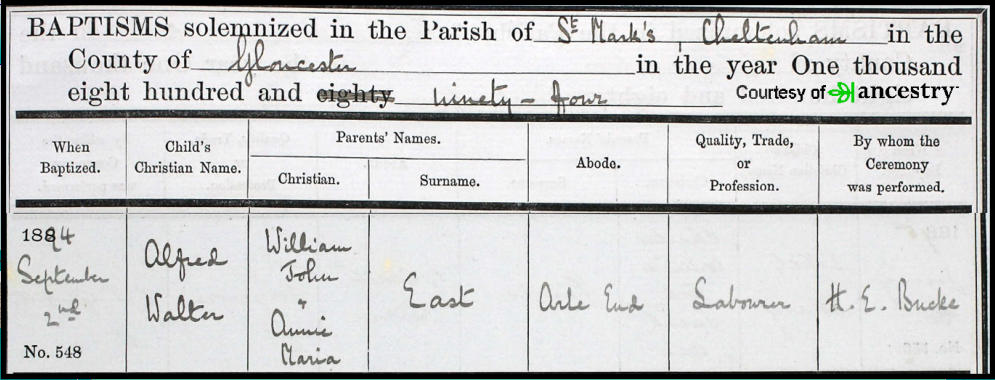 BAPTISMS solemnized in the Parish of St Mark's, Cheltenham in the
County of Gloucester in the year One thousand
eight hundred and eighty ninety-four
Courtesy of ancestry
When Baptized.
Child's Christian Name.
Parents' Names.
Christian.
Surname.
Abode.
Quality, Trade, or Profession.
By whom the Ceremony was performed.
1894
September
2nd
No. 548
Alfred
Walter
William
John
"
Annie
Maria
East
Arle End
Labourer
H. E. Bucke